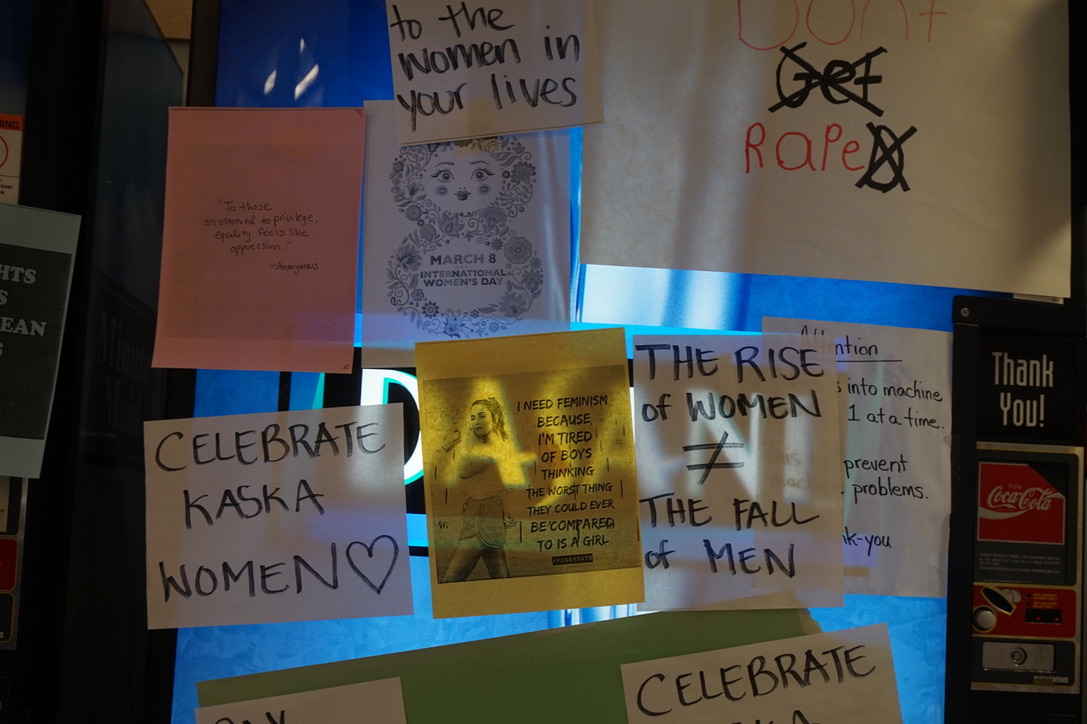 to the
women in
your lives
DONT
Get
RAPeD
NING
"To those
accustomed to privilege,
equality feels like
oppression."
-Anonymous
MARCH 8
INTERNATIONAL
WOMEN'S DAY
GHTS
S
EAN
S
THE RISE
of WOMEN
≠
THE FALL
of MEN
Attention
into machine
1 at a time.
prevent
problems.
nk-you
Thank
You!
Coca-Cola
D
CELEBRATE
KASKA
WOMEN♡
I NEED FEMINISM
BECAUSE
I'M TIRED
OF BOYS
THINKING
THE WORST THING
THEY COULD EVER
BE COMPARED
TO IS A GIRL
CELEBRATE
KASKA